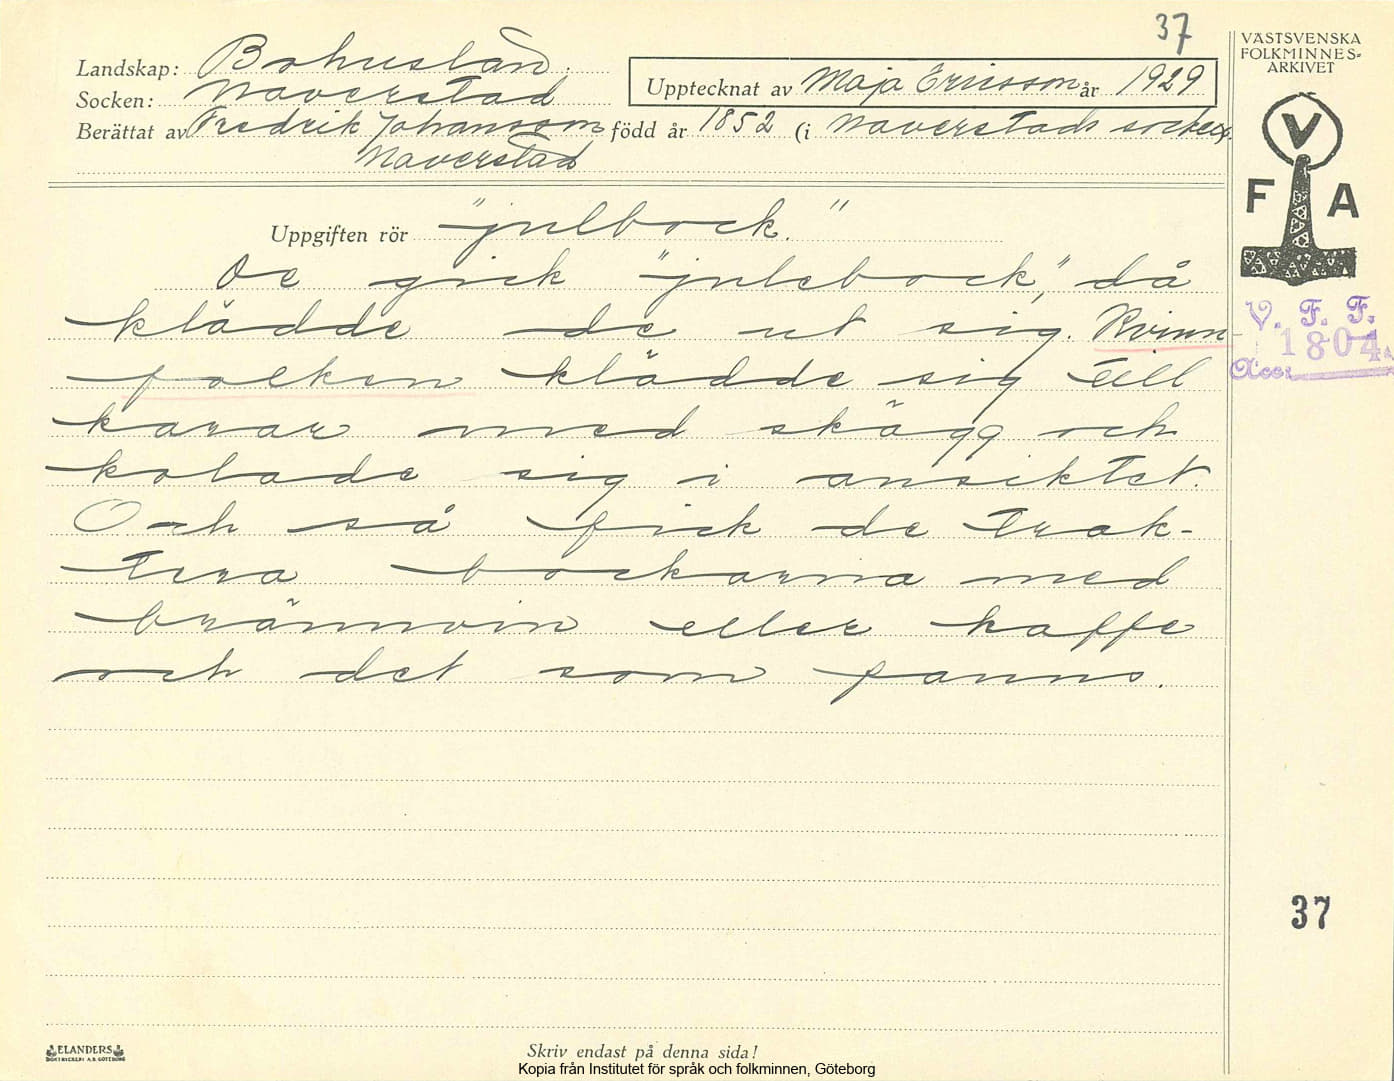 37
VÄSTSVENSKA
FOLKMINNES-
ARKIVET
Landskap: Bohuslän.
Upptecknat av Maja Ericsson år 1929
Socken: Naverstad
Berättat av Fredrik Johansson född år 1852 (i Naverstads socken
Naverstad
V
F A
Uppgiften rör "julbock."
De gick "julebock", då
klädde de ut sig. Kvinn-
folken klädde sig till
karar med skägg och
kolade sig i ansiktet.
Och så fick de trak-
tera bockarna med
brännvin eller kaffe
och det som fanns.
V. F. F.
1804
Acc:
37
ELANDERS
BOKTRYCKERI A.B. GÖTEBORG
Skriv endast på denna sida!
Kopia från Institutet för språk och folkminnen, Göteborg